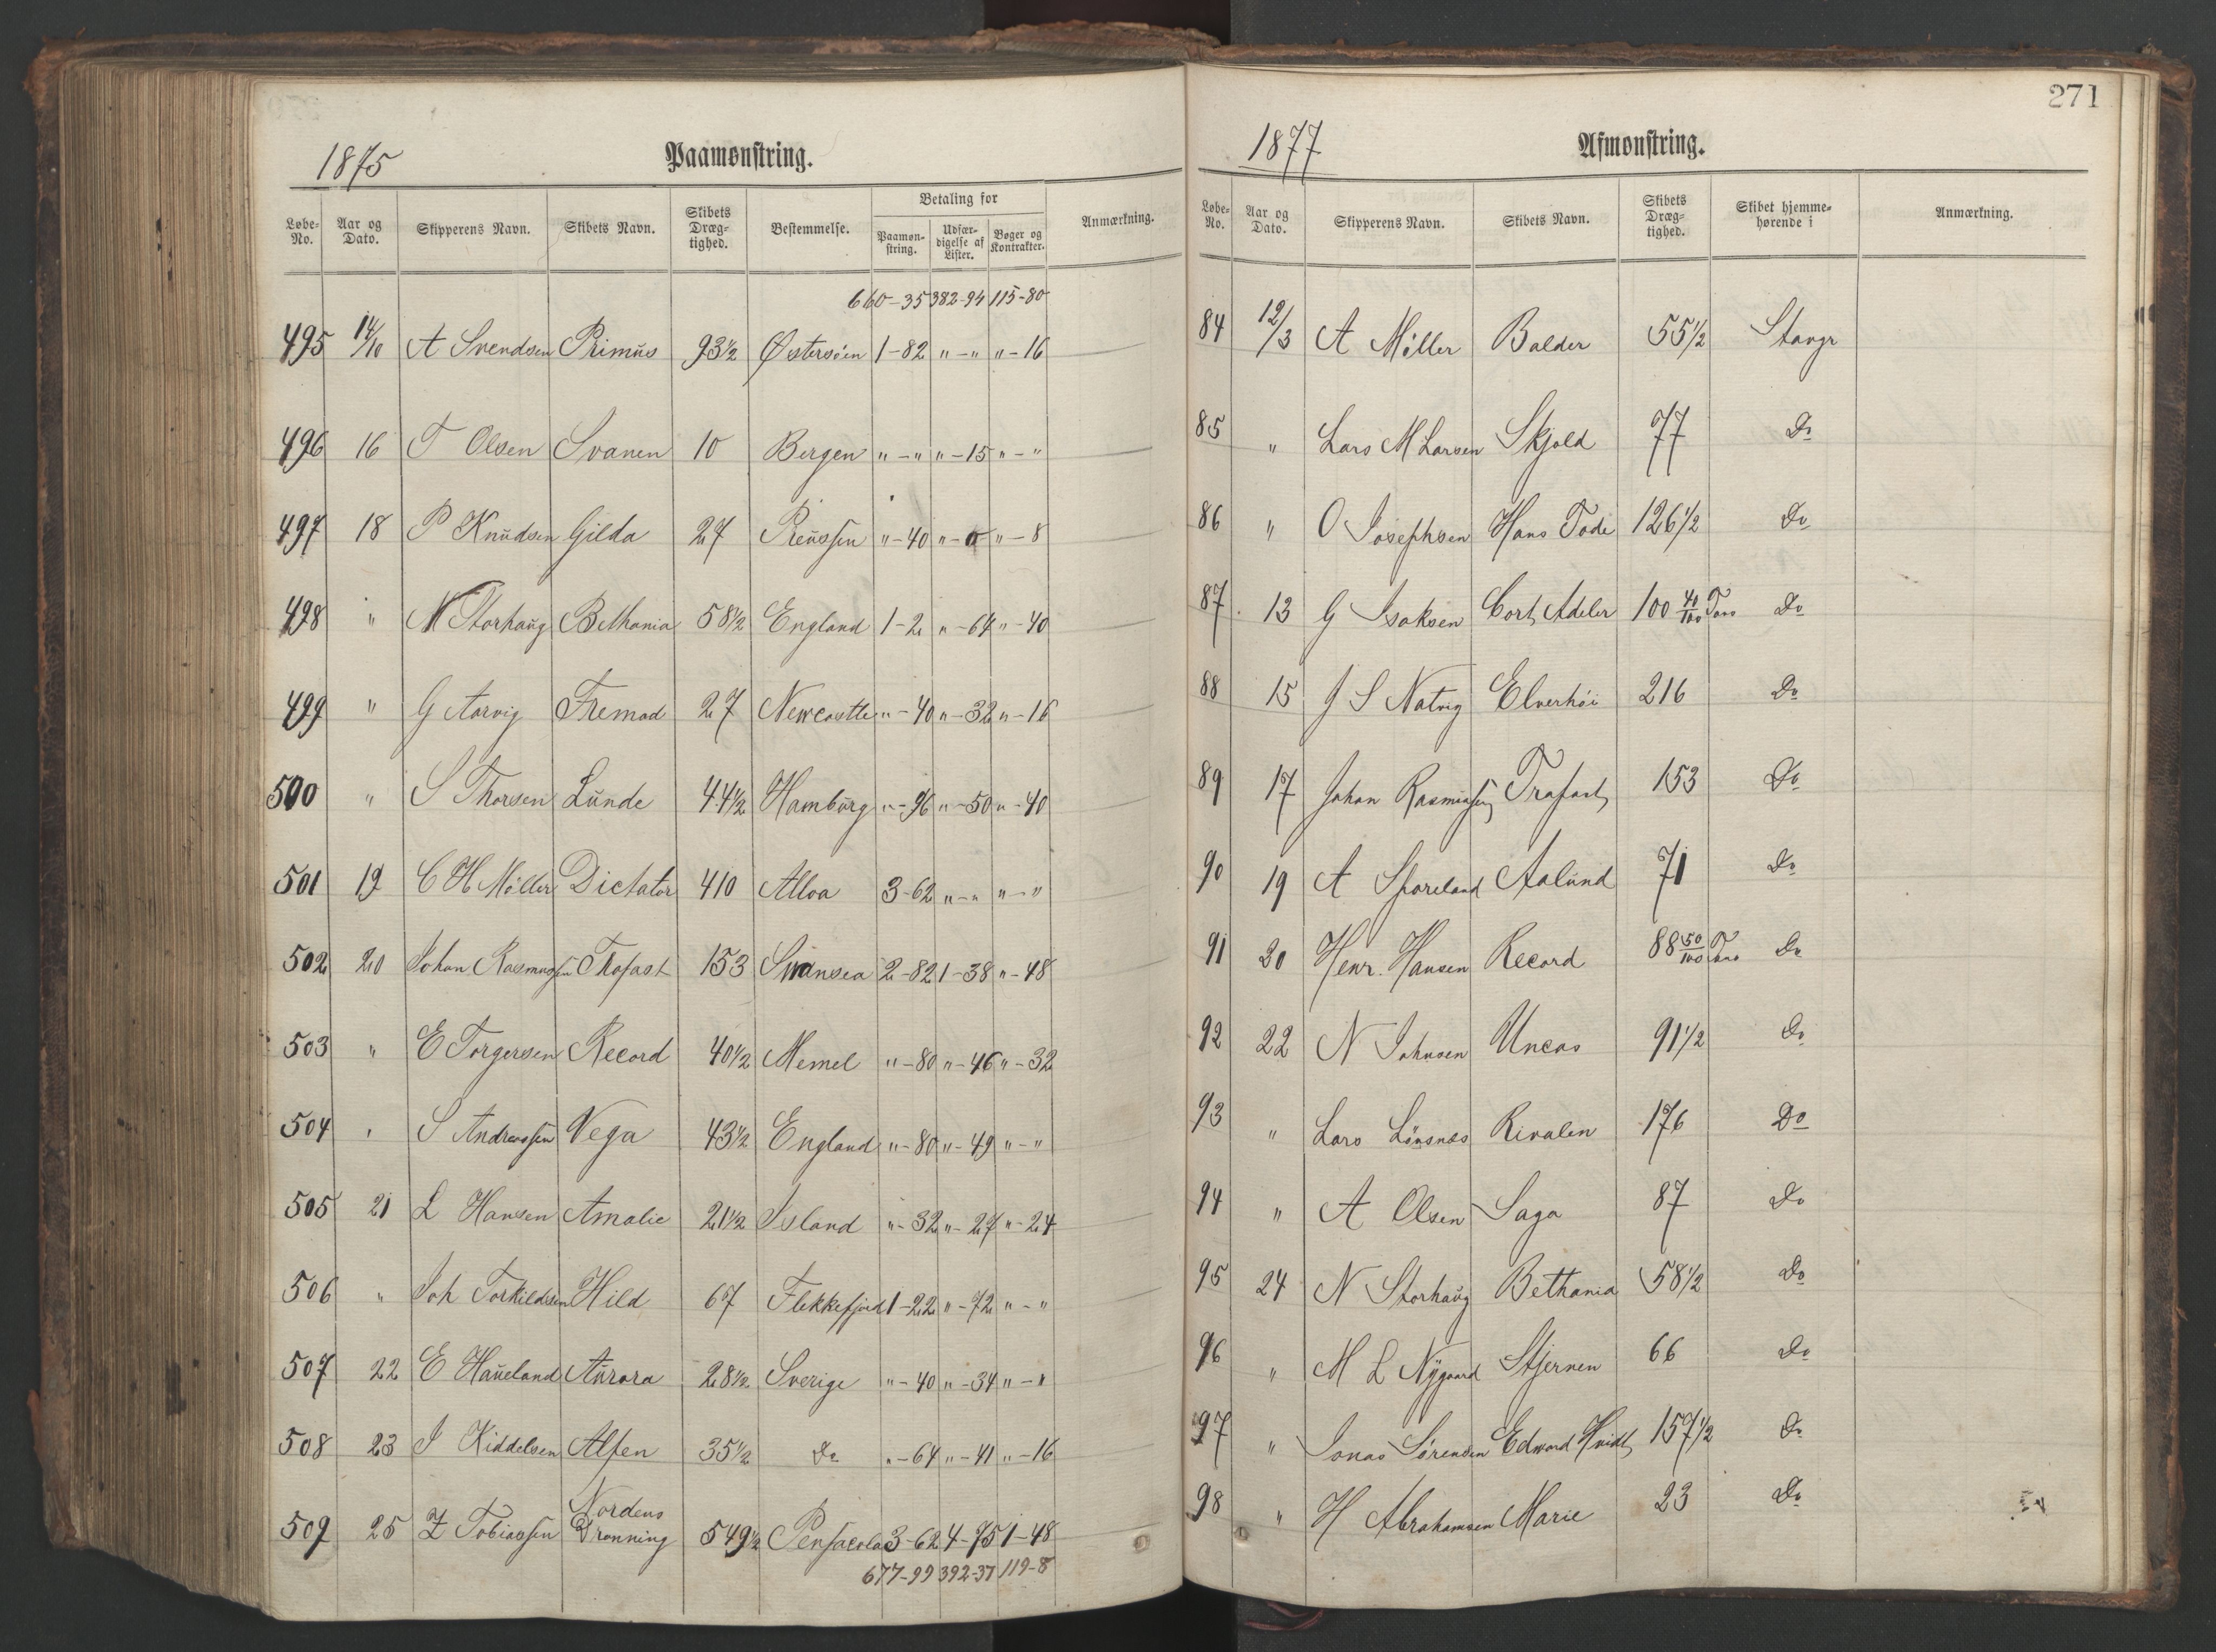 1875 Paamønstring.
Løbe-No. Aar og Dato. Skipperens Navn. Skibets Navn. Skibets Dræg-tighed. Bestemmelse. Betaling for Paamøn-string. Udfær-digelse af Lister. Bøger og Kontrakter. Anmærkning.
660-35 382-94 115-80
495 14/10 A Svendsen Primus 93½ Østersøen 1-82 "-" "-16
496 16 T Olsen Svanen 10 Bergen "-" "-15 "-"
497 18 P Knudsen Gilda 27 Preussen "-40 "- "-8
498 " N Storhaug Bethania 58½ England 1-2 "-64 "-40
499 " G Aarvig Fremad 27 Newcastle "-40 "-32 "-16
500 " S Thorsen Lunde 44½ Hamburg "-96 "-50 "-40
501 19 C H Møller Dictator 410 Alloa 3-62 "-" "-"
502 20 Johan Rasmussen Trofast 153 Swansea 2-82 1-38 "-48
503 " E Torgersen Record 40½ Memel "-80 "-46 "-32
504 " S Andreassen Vega 43½ England "-80 "-49 "-"
505 21 L Hansen Amalie 21½ Island "-32 "-27 "-24
506 " Joh Torkildsen Hild 67 Flekkefjord 1-22 "-72 "-"
507 22 E Haueland Aurora 28½ Sverige "-40 "-34 "-"
508 23 J Kiddelsen Alfen 35½ Do "-64 "-41 "-16
509 25 Z Tobiassen Nordens Dronning 549½ Pensacola 3-62 4-75 1-48
677-99 392-37 119-8
271
1877 Afmønstring.
Løbe-No. Aar og Dato. Skipperens Navn. Skibets Navn. Skibets Dræg-tighed. Skibet hjemme-hørende i Anmærkning.
84 12/3 A Møller Balder 55½ Stavgr
85 " Lars M Larsen Skjold 77 Do
86 " O Josephsen Hans Tode 126½ Do
87 13 G Isaksen Cort Adeler 100 40/100 Tons Do
88 15 J S Natvig Elverhøi 216 Do
89 17 Johan Rasmussen Trofast 153 Do
90 19 A Sporeland Aalund 71 Do
91 20 Henr. Hansen Record 88 50/100 Tons Do
92 22 N Johnsen Uncas 91½ Do
93 " Lars Lønsnes Rivalen 176 Do
94 " A Olsen Saga 87 Do
95 24 N Storhaug Bethania 58½ Do
96 " M L Nygaard Stjernen 66 Do
97 " Jonas Sørensen Edward Hvidt 157½ Do
98 " H Abrahamsen Marie 23 Do